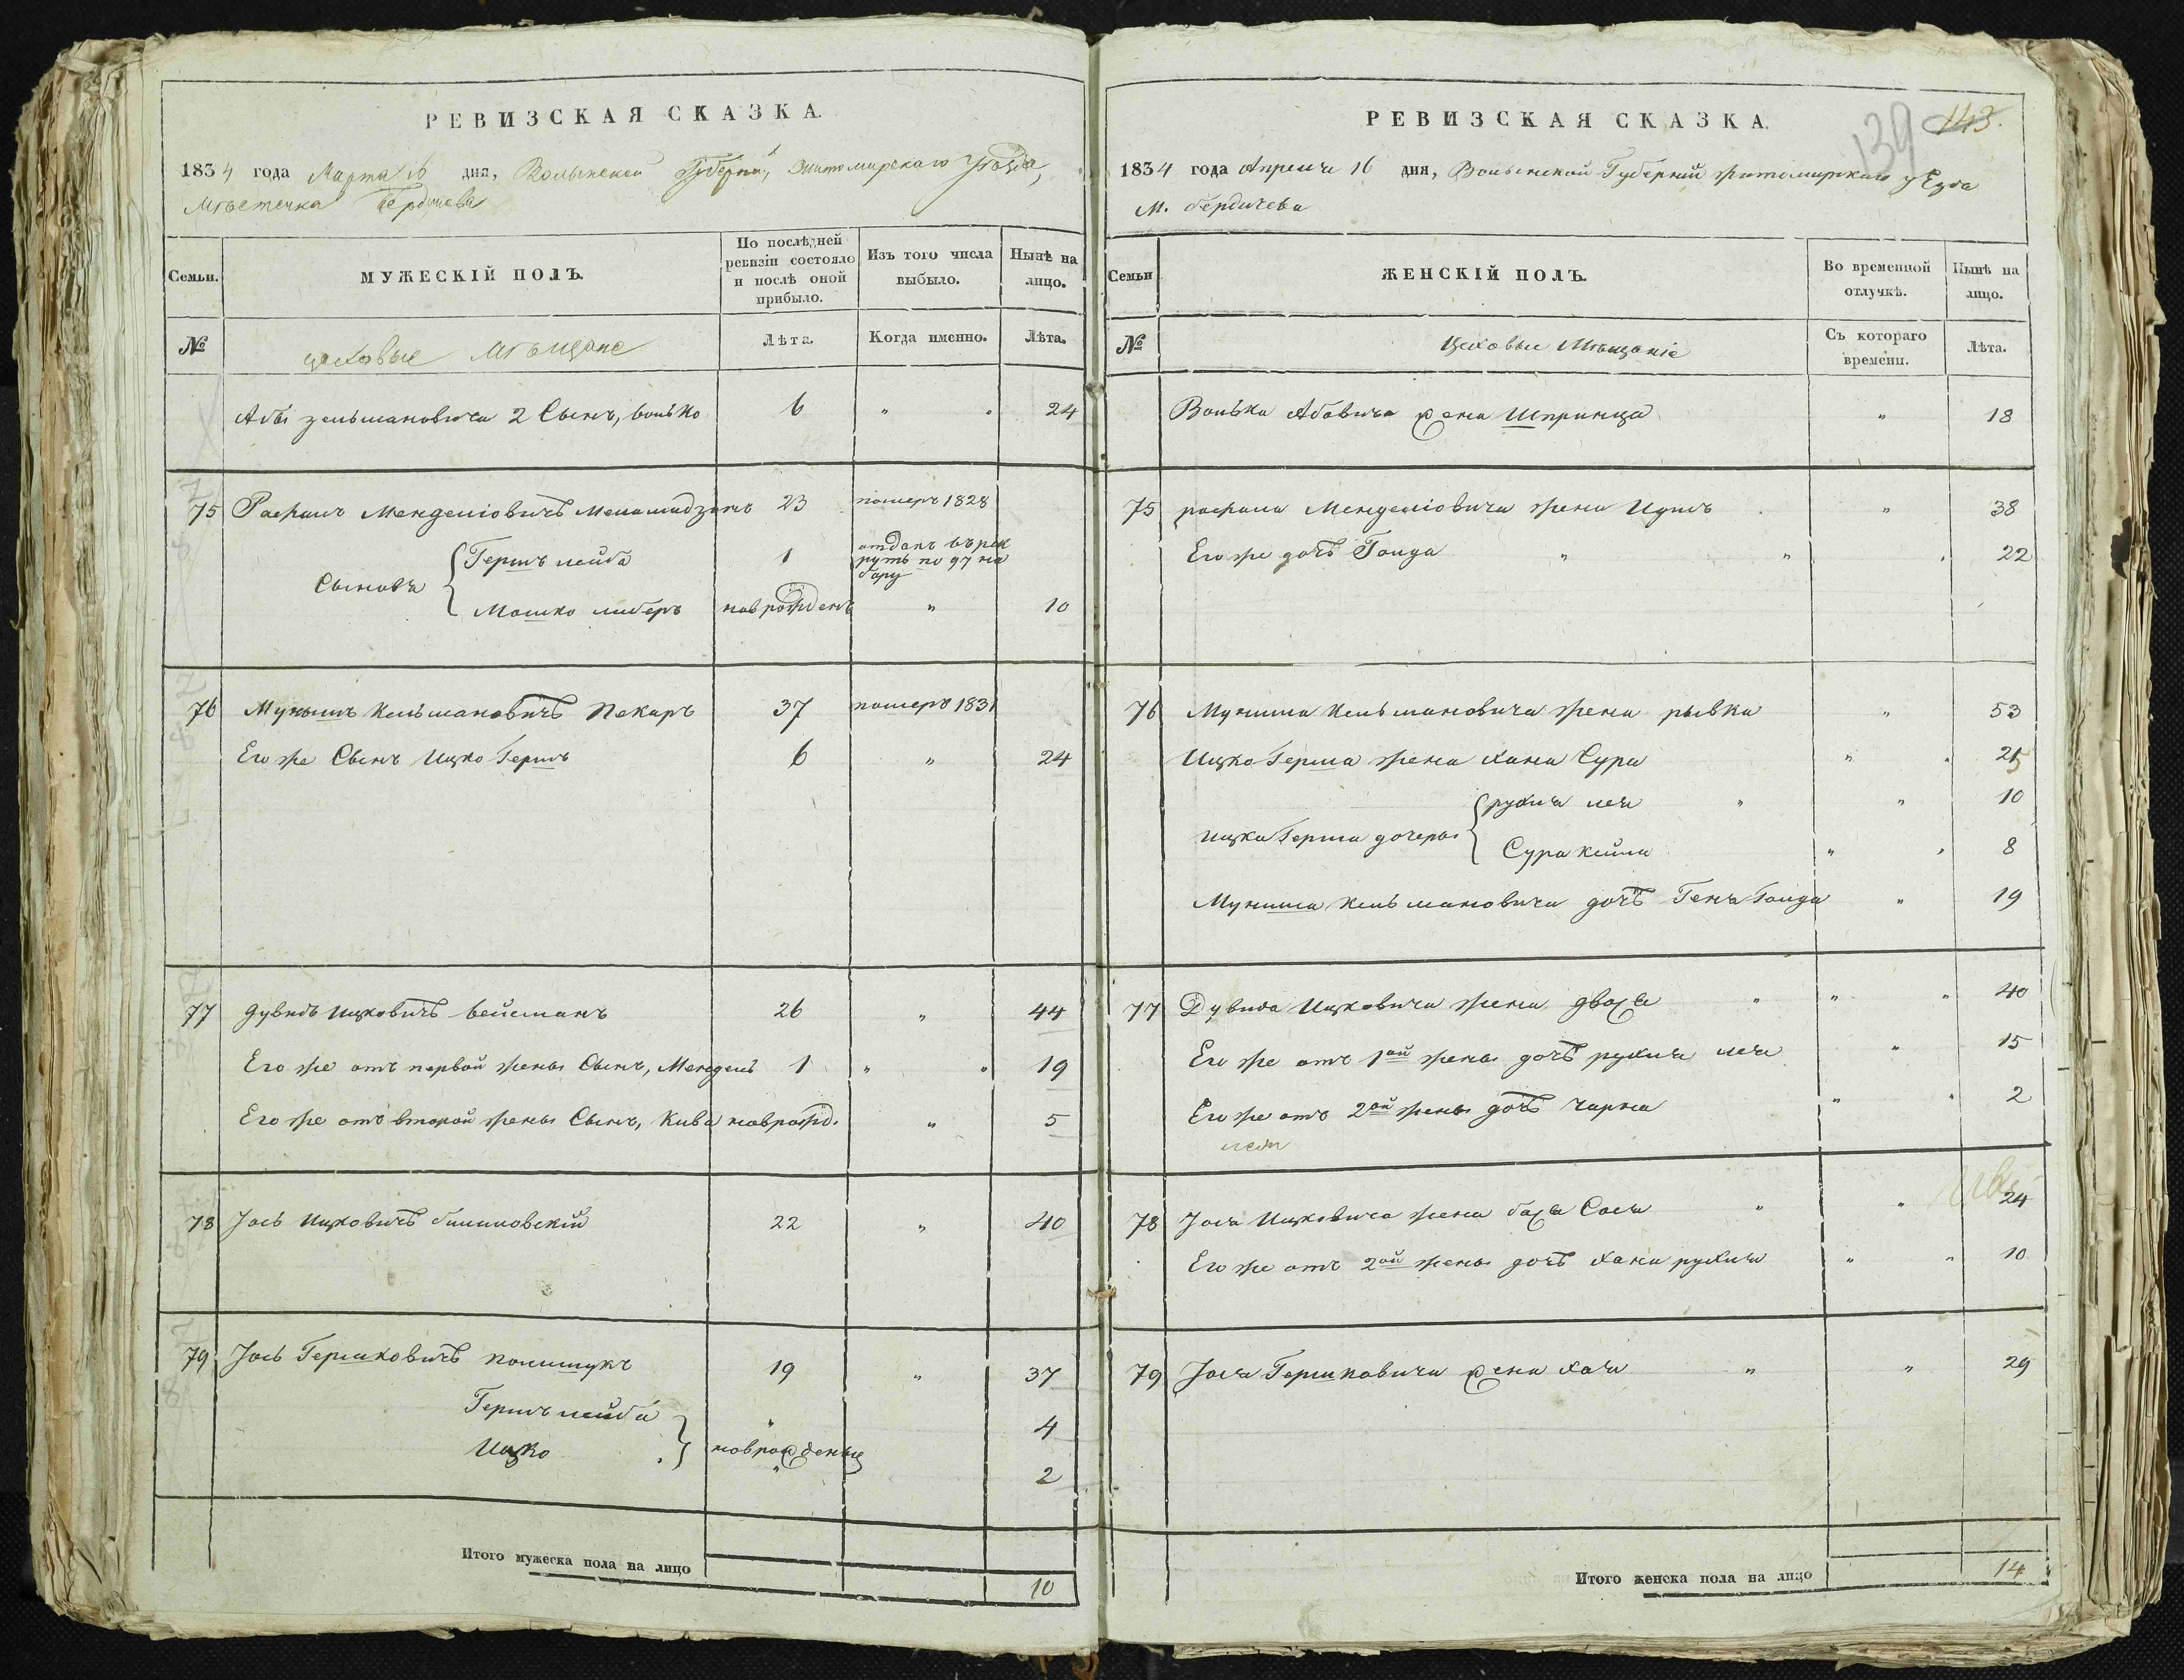 РЕВИЗСКАЯ СКАЗКА.
1834 года Марта 16 дня, Волынской Губерніи, Житомирскаго Уѣзда,
Мѣстечка Бердичева
Семьи. МУЖЕСКІЙ ПОЛЪ. По послѣдней ревизіи состояло и послѣ оной прибыло. Изъ того числа выбыло. Нынѣ на лицо.
№ цеховые Мѣщане Лѣта. Когда именно. Лѣта.
Абы зельмановича 2 Сынъ, волько 6 " " 24
75 Рафаилъ Менделіовичъ 23 померъ 1828
Сыновья { Гершъ лейба 1 отданъ въ рекруты по 97 набору
Мошко либеръ новрожденъ " 10
76 Мунышъ Кельмановичъ Пекаръ 37 померъ 1831
Его же Сынъ Ицко Гершъ 6 " 24
77 Дувидъ Ицковичъ вейсманъ 26 " 44
Его же отъ первой жены Сынъ, Мендель 1 " " 19
Его же отъ второй жены Сынъ, Кива новрожд. " 5
78 Јось Ицковичъ 22 " 40
79 Јось Гершковичъ полищукъ 19 " 37
Гершъ лейба " 4
Ицко } новрожденые " 2
Итого мужеска пола на лицо 10
РЕВИЗСКАЯ СКАЗКА.
139 143.
1834 года Апреля 16 дня, Волынской Губерніи житомирскаго уезда
М. бердичева
Семьи ЖЕНСКІЙ ПОЛЪ. Во временной отлучкѣ. Нынѣ на лицо.
№ Цеховые Мѣщаніе Съ котораго времени. Лѣта.
Волька Абовича жена Шпринца " 18
75 рафаила Менделіовича жена " 38
Его же дочъ Голда " " " 22
76 Муниша Кельмановича жена рывка " 53
Ицко Герша жена хана Сура " " 25
Ицка Герша дочеры { рухля лея " " 10
Сура кейла " " 8
Муниша Кельмановича дочъ Геня Голда " 19
77 Дувида Ицковича жена двося " " " 40
Его же отъ 1ой жены дочъ рухля лея " 15
Его же отъ 2ой жены дочъ чарна " " 2
78 Јося Ицковича жена бася Сося " " 24
Его же отъ 2ой жены дочъ хана рухля " " 10
79 Јося Гершковича жена хая " " 29
Итого женска пола на лицо 14